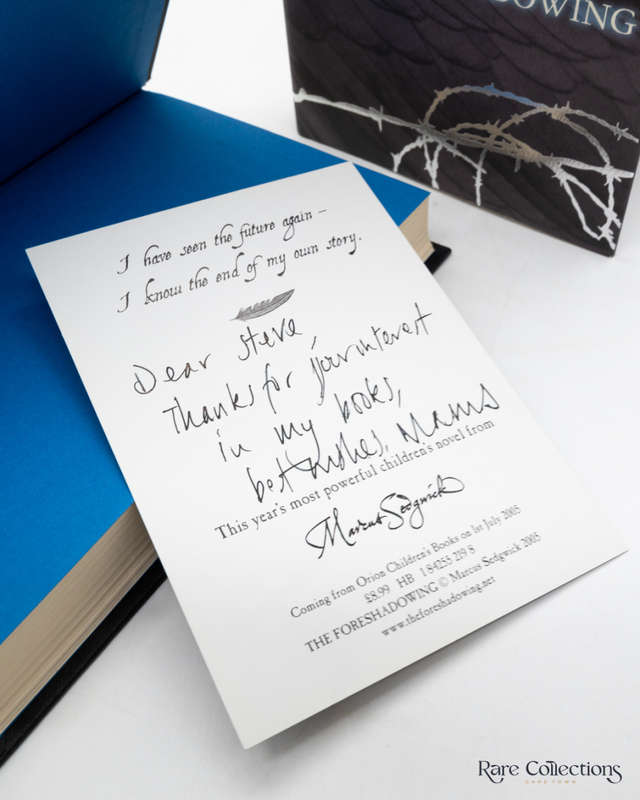 ADOWING
I have seen the future again –
I know the end of my own story.
Dear Steve,
Thanks for your interest
in my books,
best wishes, Marcus
This year's most powerful children's novel from
Marcus Sedgwick
Coming from Orion Children's Books on 1st July 2005
£8.99 HB 1 84255 219 8
THE FORESHADOWING © Marcus Sedgwick 2005
www.theforeshadowing.net
Rare Collections
CAPE TOWN